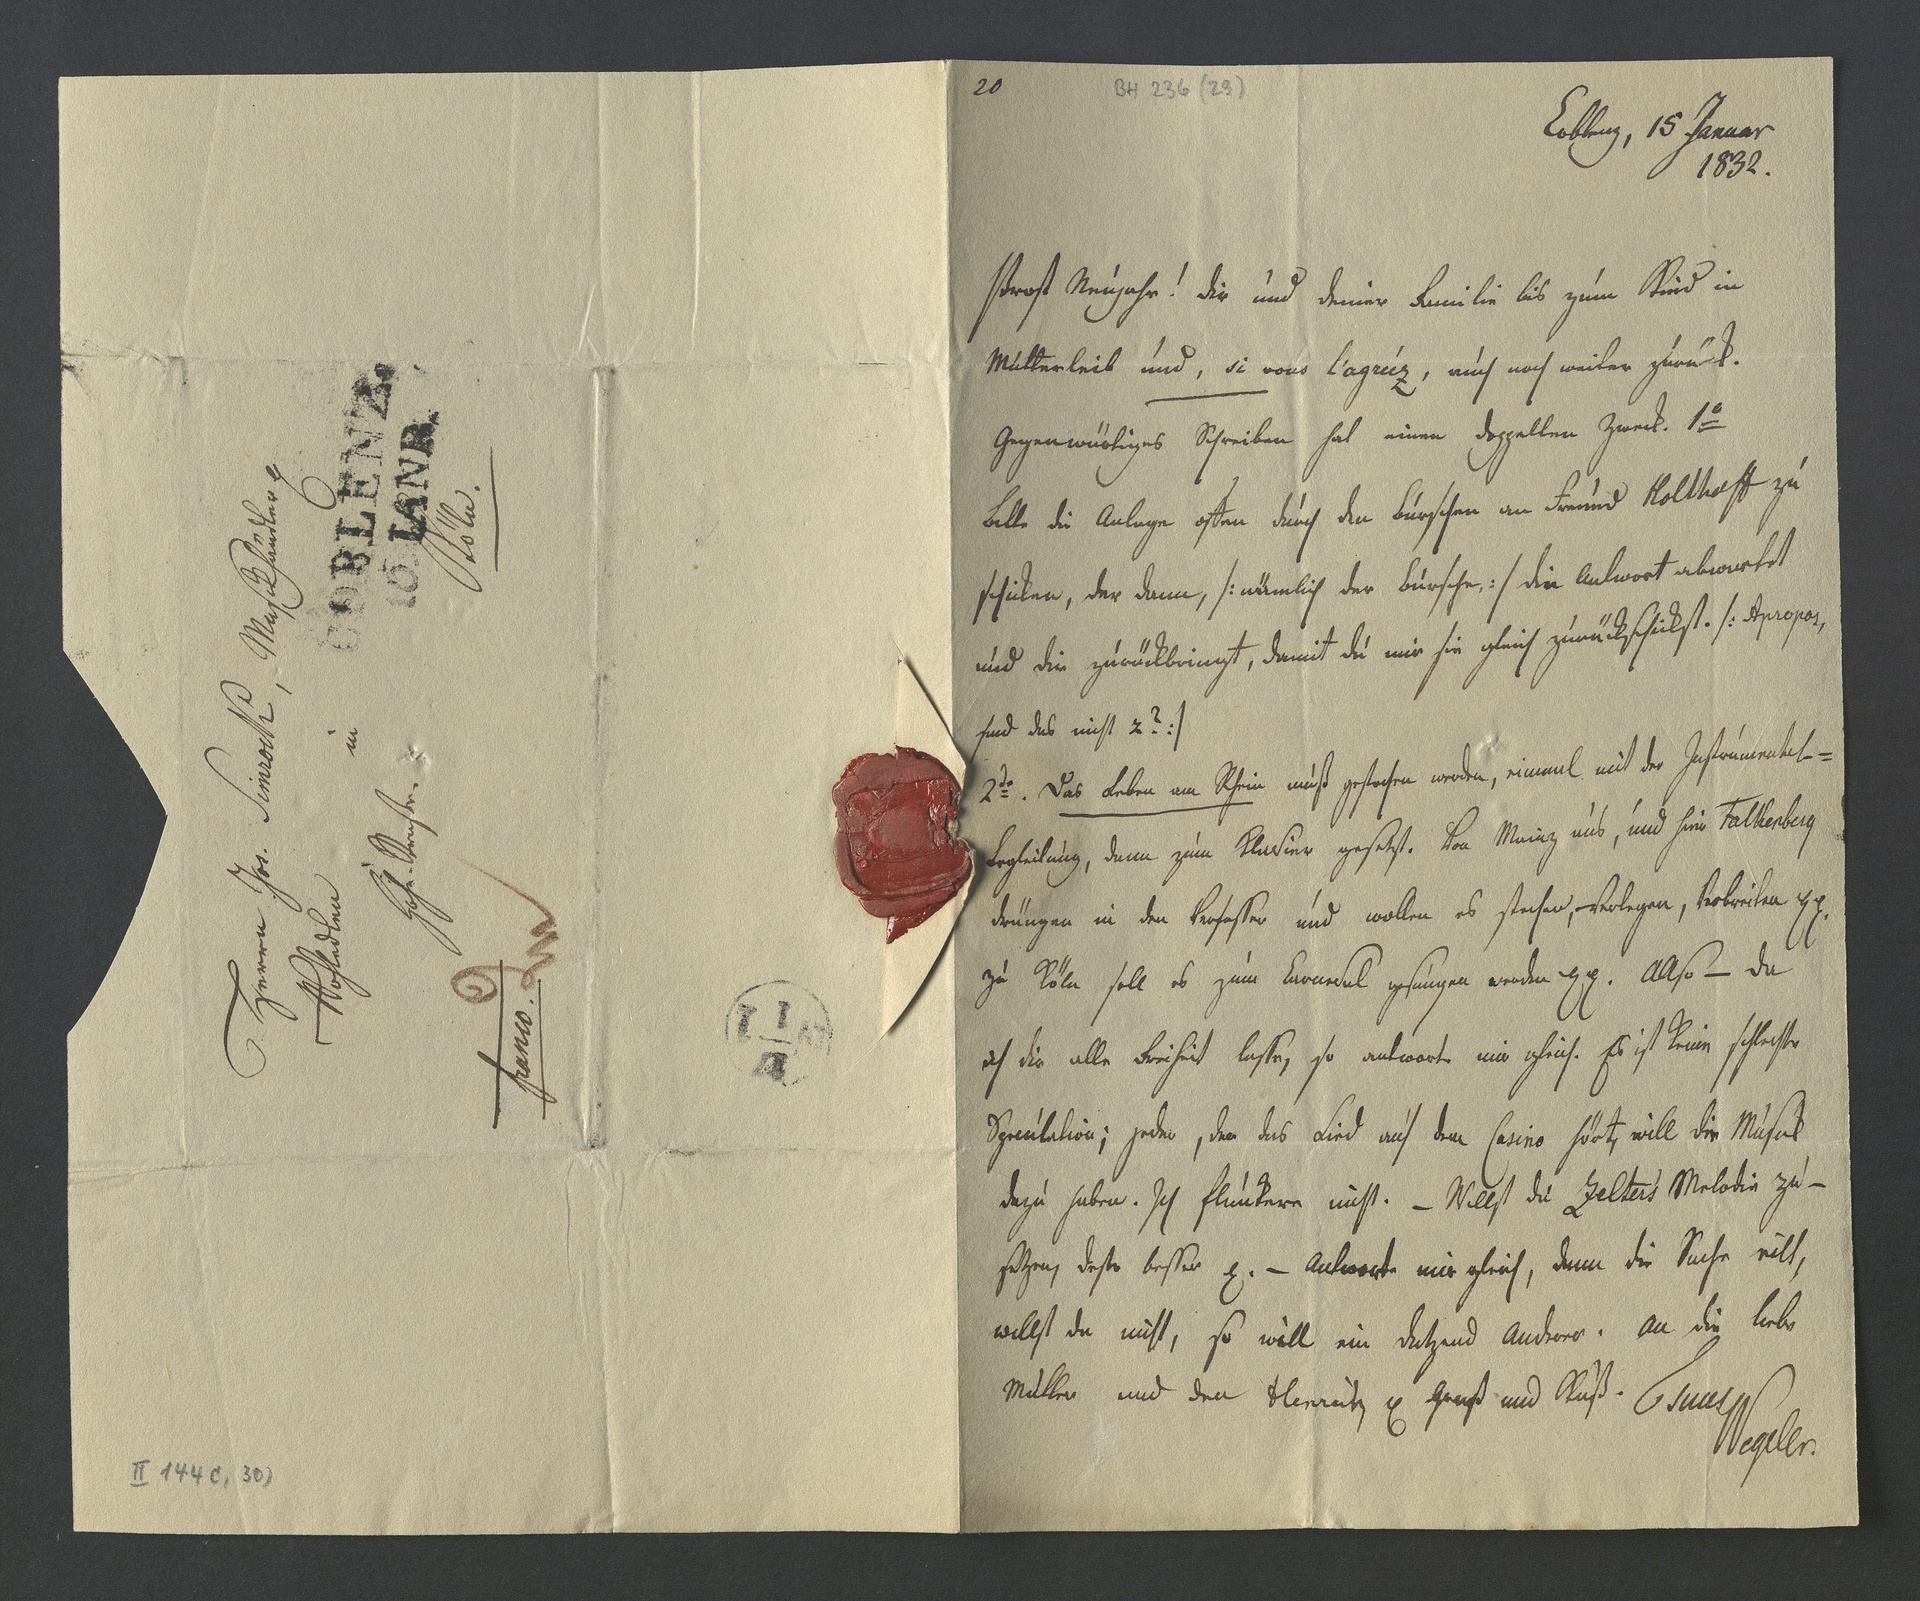 20
BH 236 (29)
Coblenz, 15 Januar
1832.
Prost Neujahr! dir und deiner Familie bis zum Kind in
Mutterleib und, si vous l'agréez, auch noch weiter zurück.
Gegenwärtiges Schreiben hat einen doppelten Zweck. 1o
bitte die Anlage offen durch den Burschen an Freund Holthoff zu
schicken, der dann, /: nämlich der Bursche :/ die Antwort abwartet
und dir zurückbringt, damit du mir sie gleich zurückschickst. /: Apropos,
sind das nicht 2? :/
2do. Das Leben am Rhein muß gestochen werden, einmal mit der Instrumental=
begleitung, dann zum Klavier gesetzt. Von Mainz aus, und hier Falkenberg
drängen in den Verfasser und wollen es stechen, verlegen, verbreiten pp.
zu Köln soll es zum Carneval gesungen werden pp. Also – da
ich dir alle Freiheit lasse, so antworte mir gleich. Es ist keine schlechte
Speculation; jeder, der das Lied auf dem Casino hört, will die Musik
dazu haben. Ich flunkere nicht. – Willst du Zelter's Melodie zu-
setzen, desto besser p. – Antworte mir gleich, denn die Sache eilt,
willst du nicht, so will ein dutzend Anderer. An die liebe
Mutter und den Gruß und Kuß. Tuus
Wegeler.
Herrn Jos. Simrock, Musikhändler
Wohledlen
in
Köln.
Hohe-Straße.
franco.
COBLENZ.
16 JANR.
II 144 c, 30)